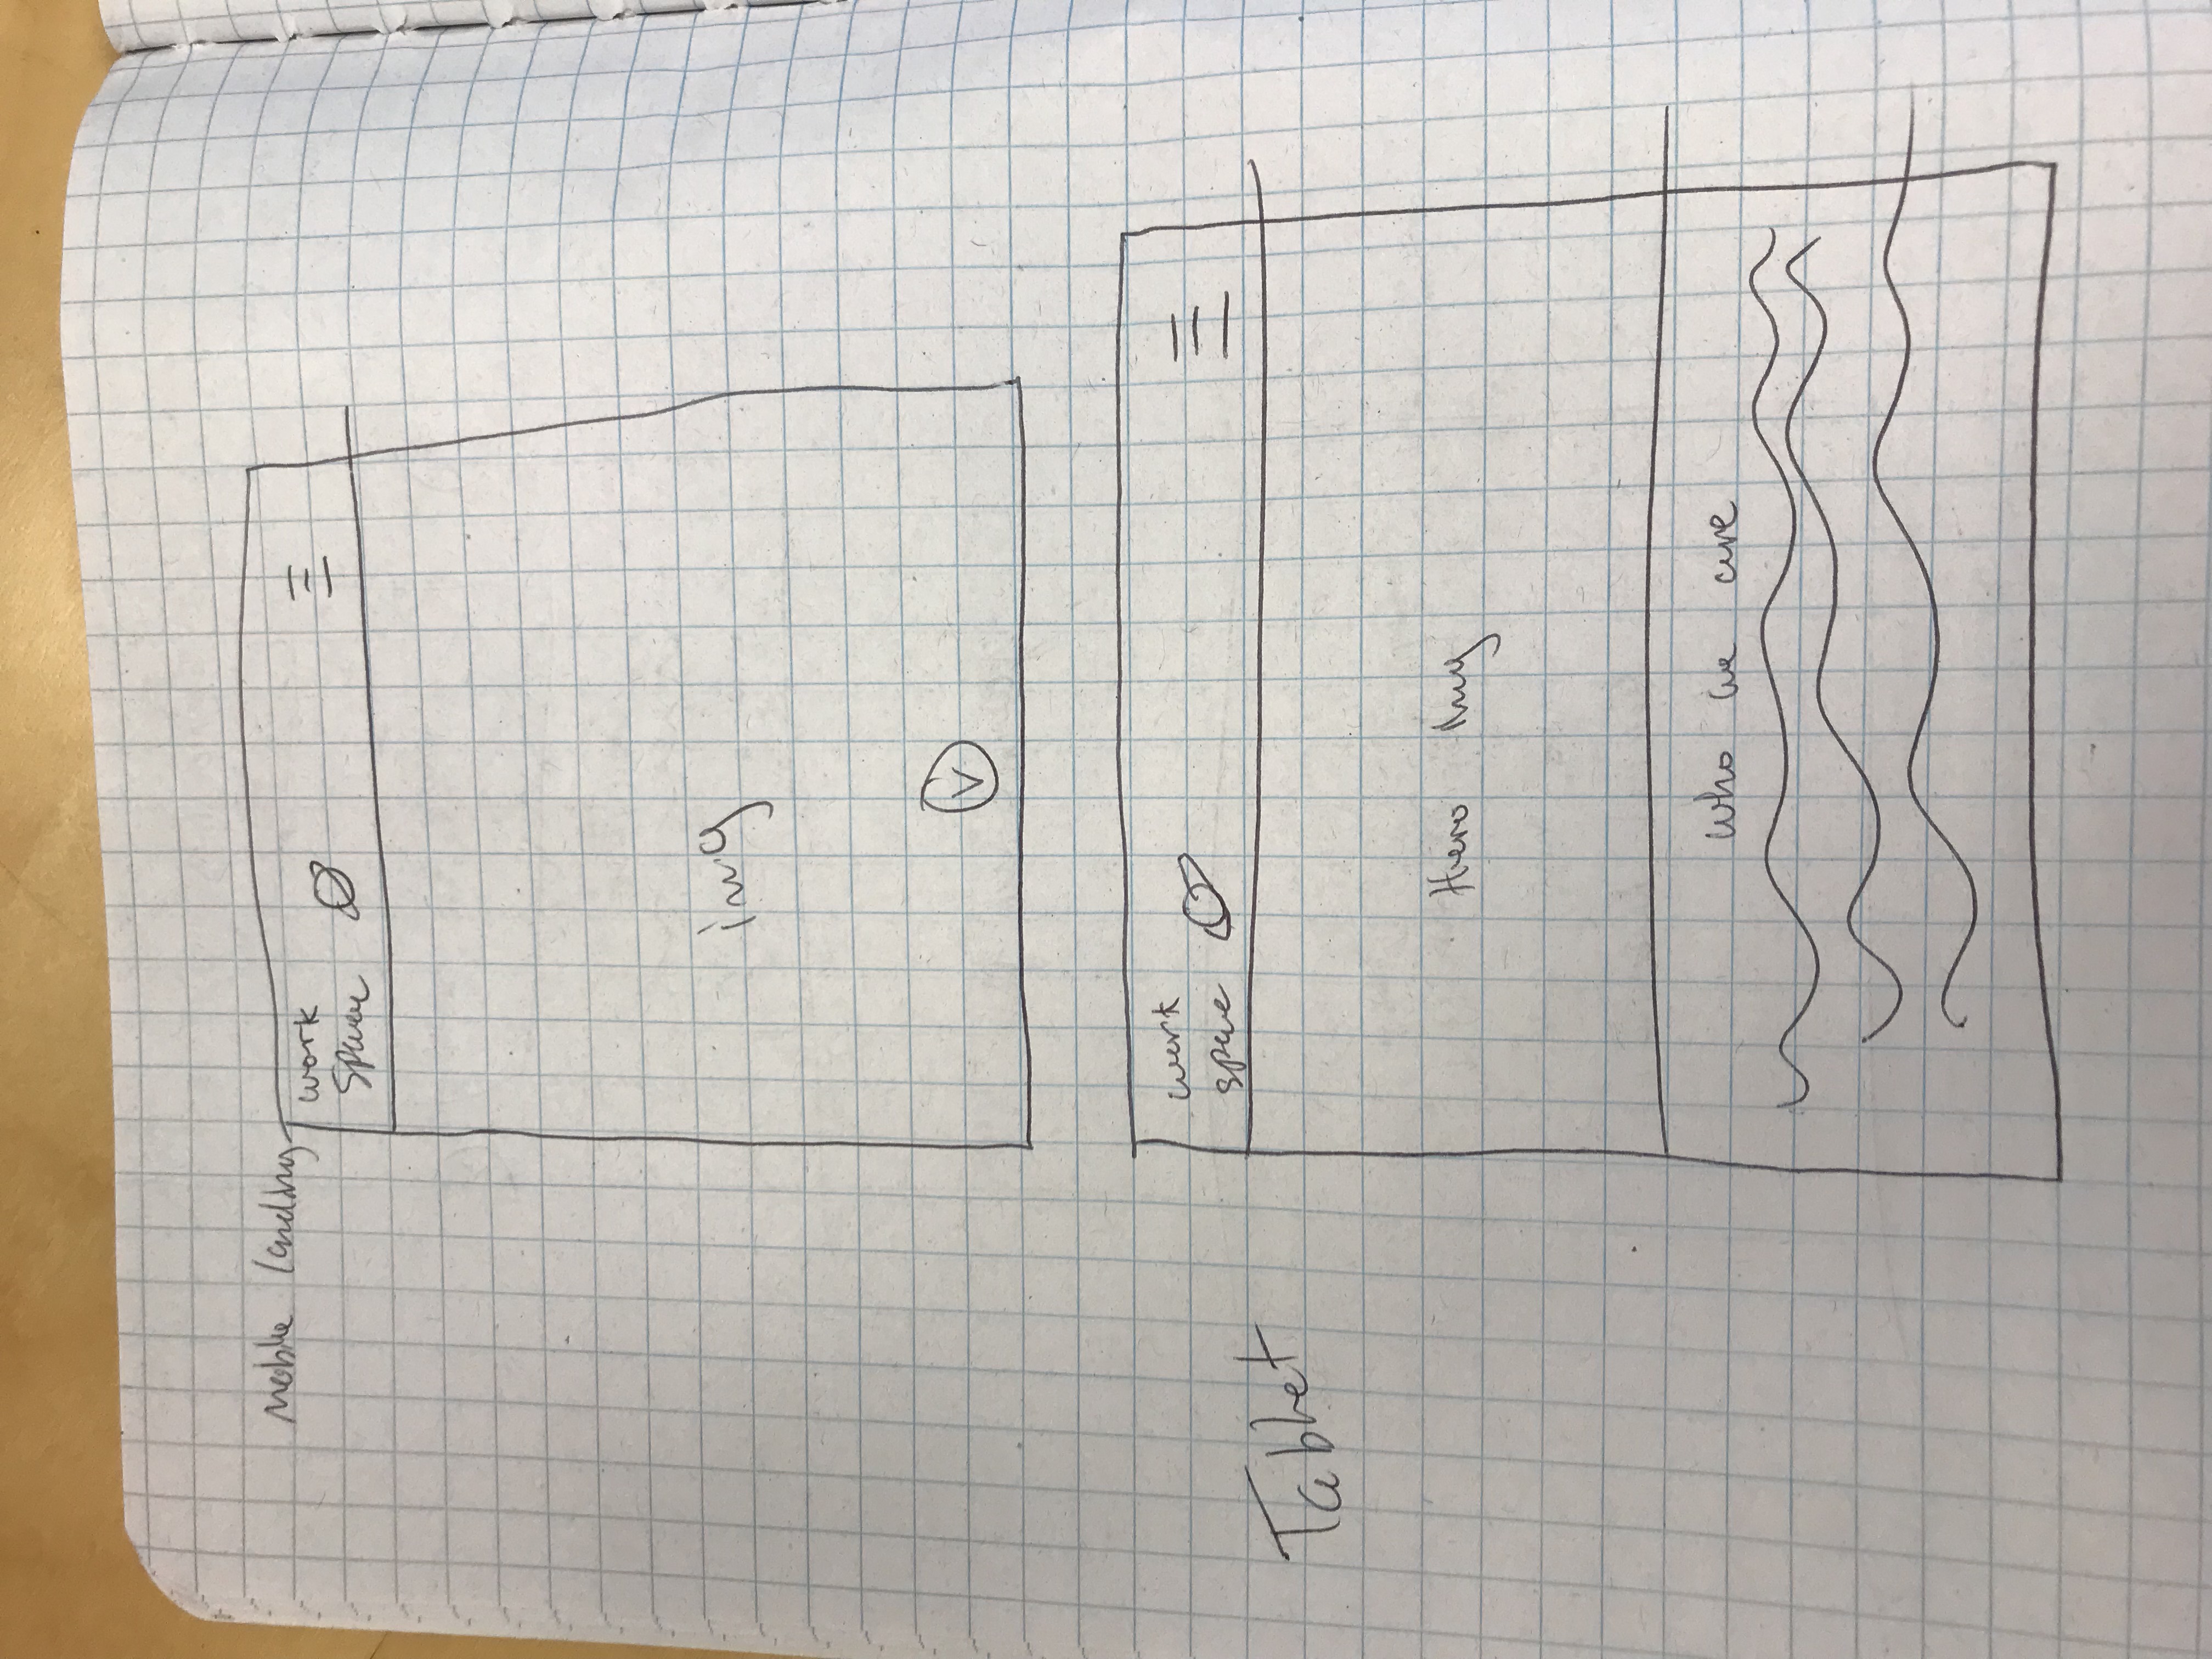 Mobile landing
work
space
img
v
Tablet
work
space
Hero img
who we are